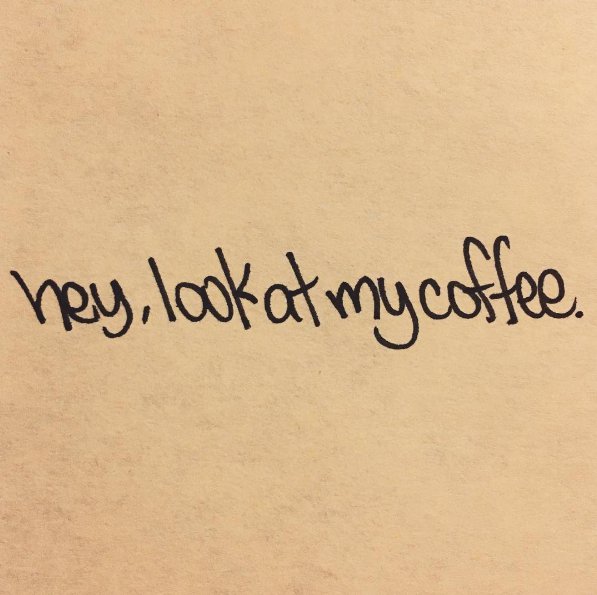 hey, look at my coffee.